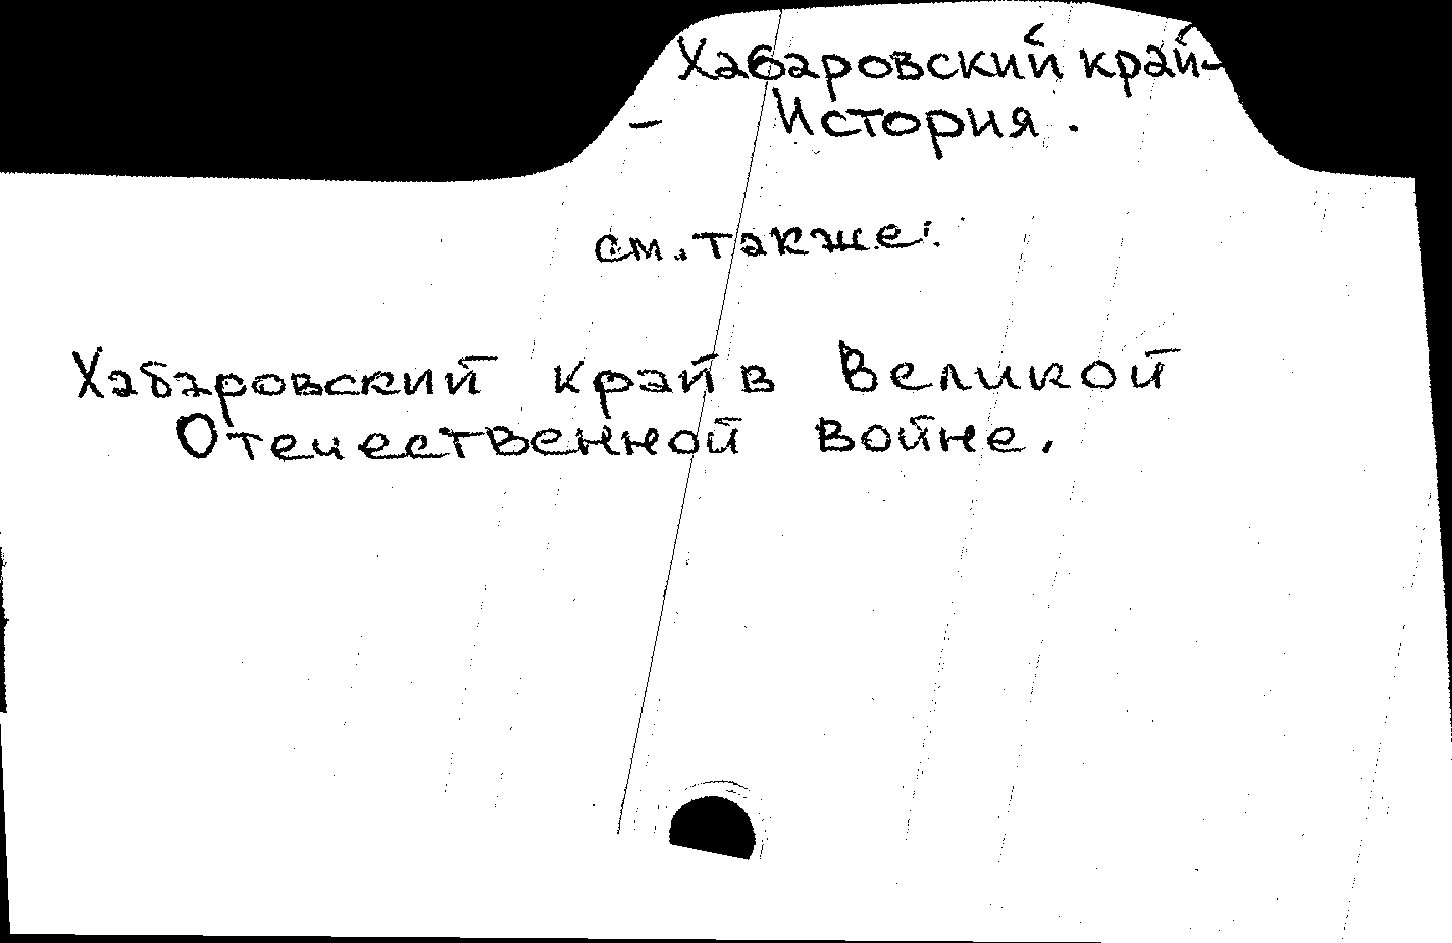 Хабаровский край-
- История.
см. также:
Хабаровский край в Великой
Отечественной войне.